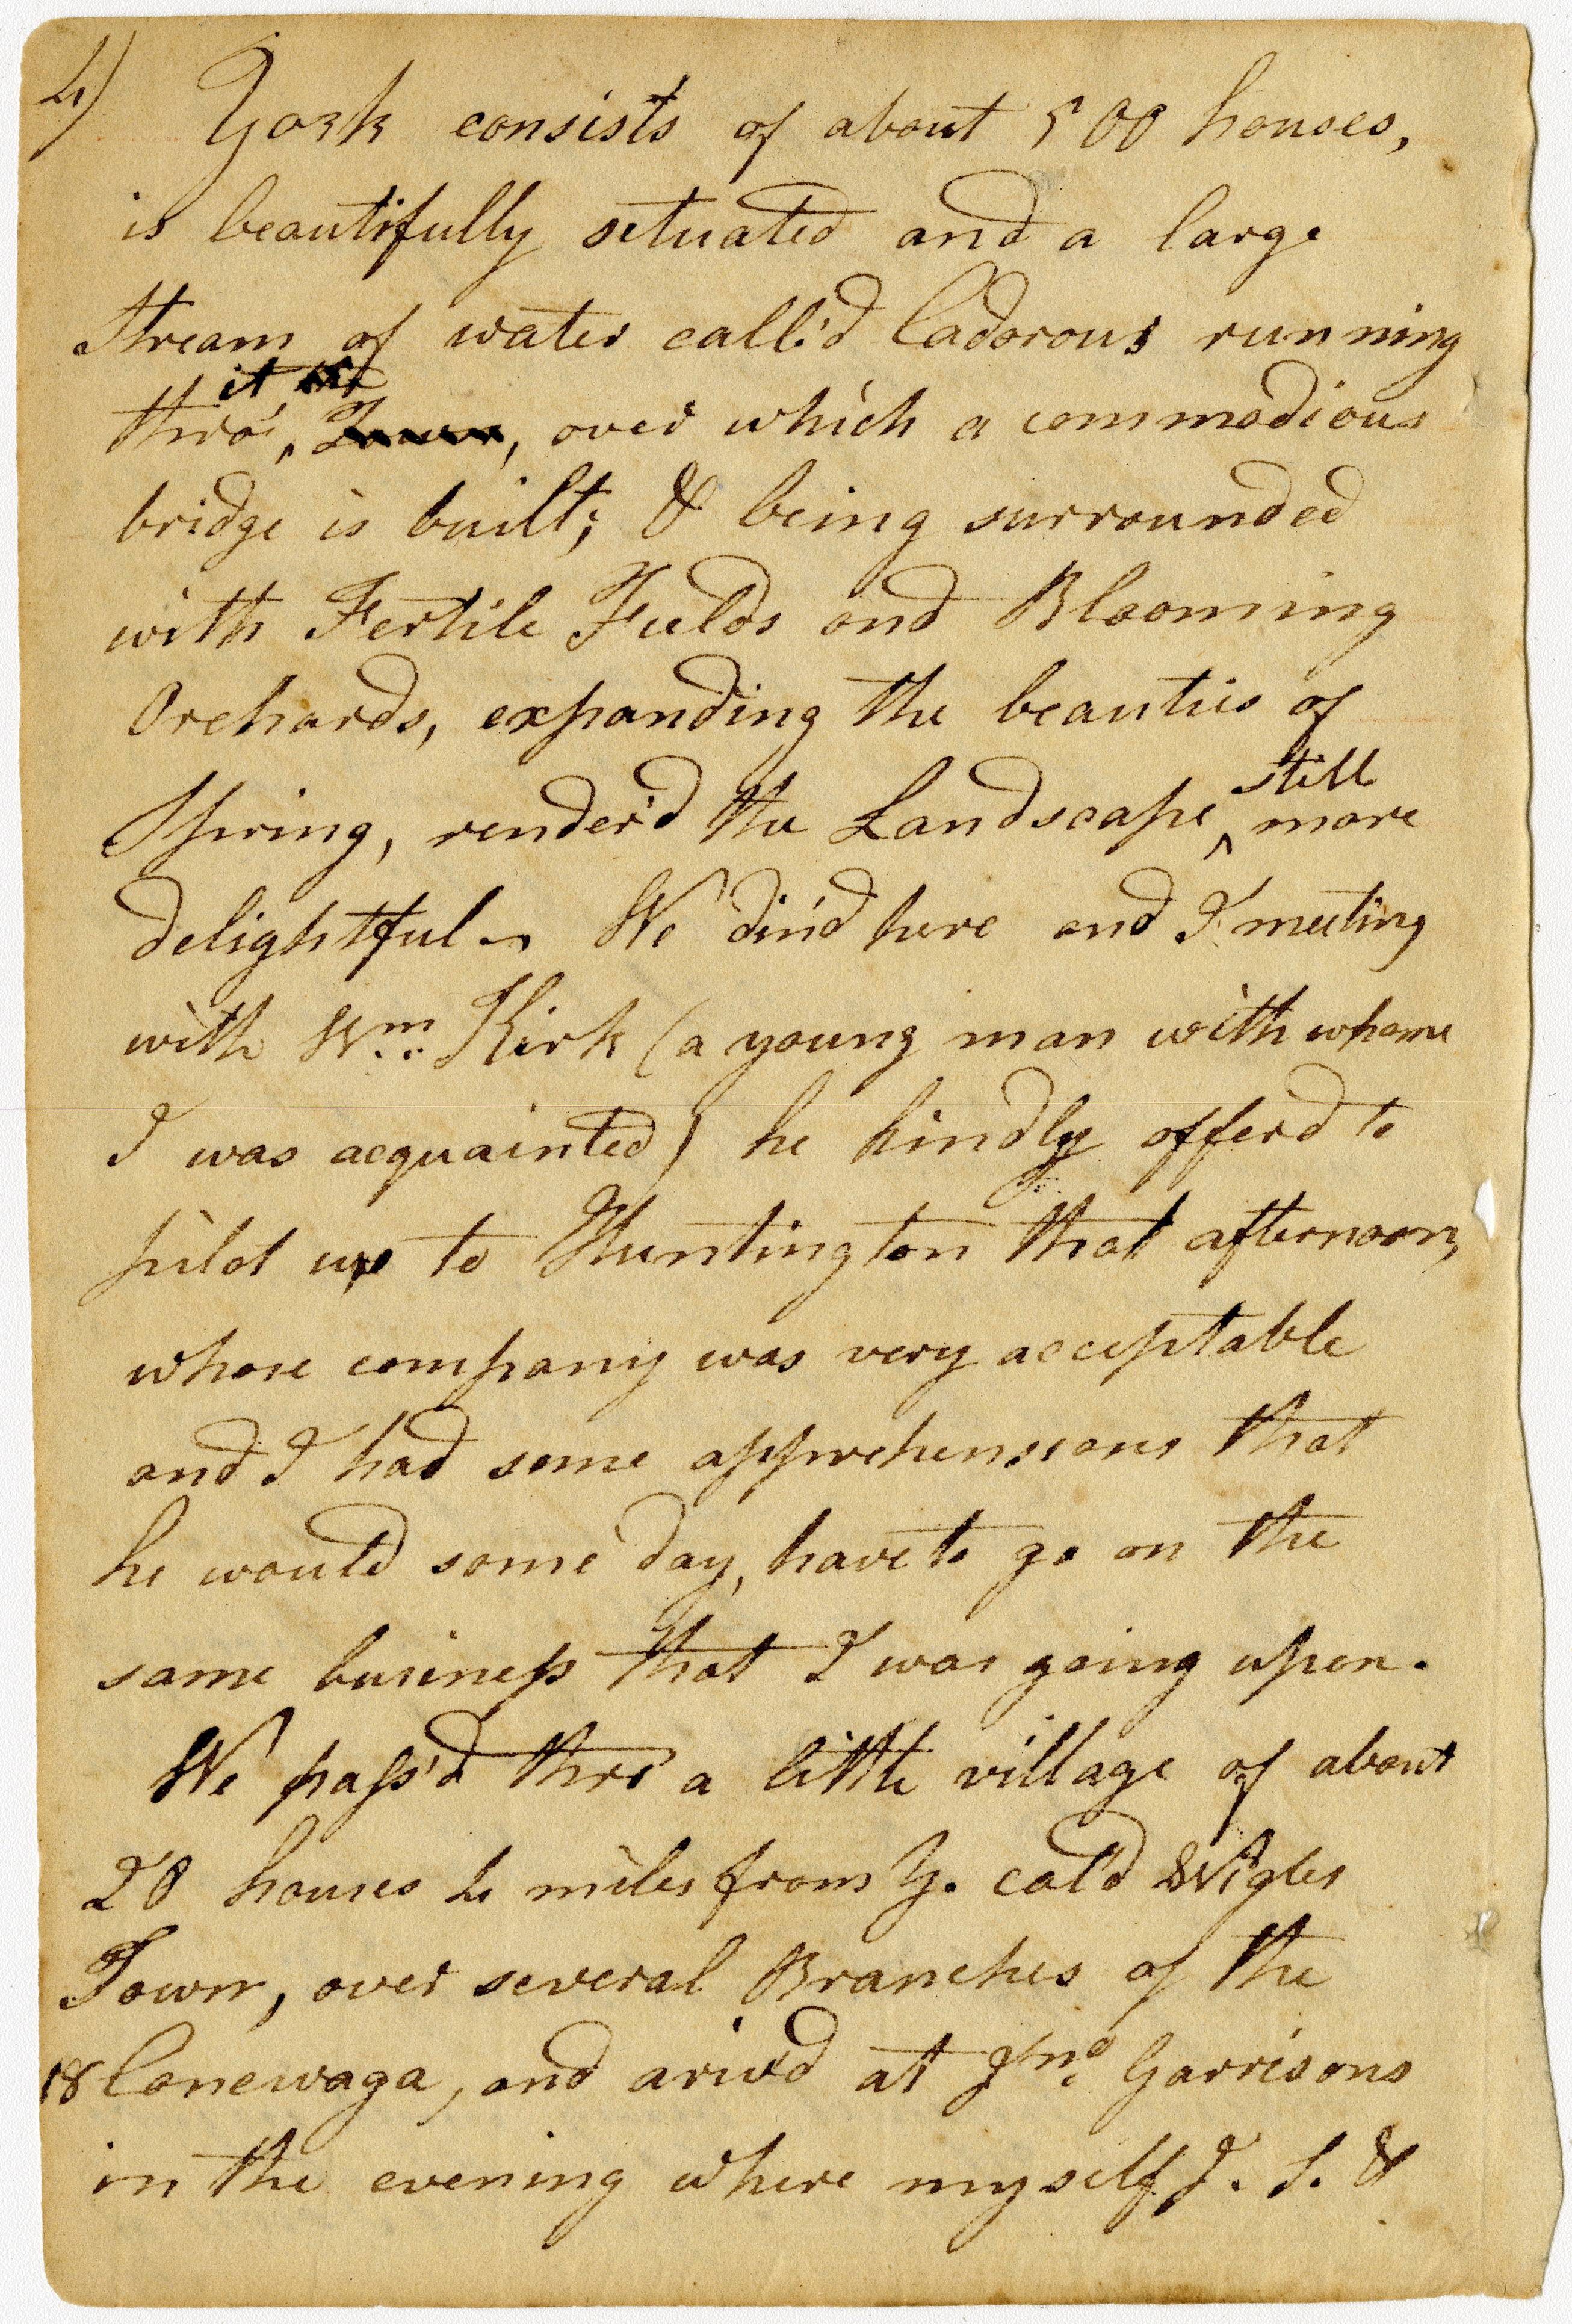 4) York consists of about 500 houses,
is beautifully situated and a large
Stream of water call'd Codorous running
thro' it, over which a commodious
bridge is built; & being surrounded
with Fertile Fields and Blooming
Orchards, expanding the beauties of
Spring, render'd the Landscape still more
delightful. We din'd here and I meeting
with Wm. Kirk (a young man with whome
I was acquainted) he kindly offerd to
pilot us to Huntington that afternoon,
whose company was very acceptable
and I had some apprehensions that
he would some day, have to go on the
same business that I was going upon.
We pass'd thro' a little village of about
20 houses 4 miles from Y. cal'd Wigles
Town, over several Branches of the
18 Conewaga, and ariv'd at Jno. Garrisons
in the evening where myself J. S. &